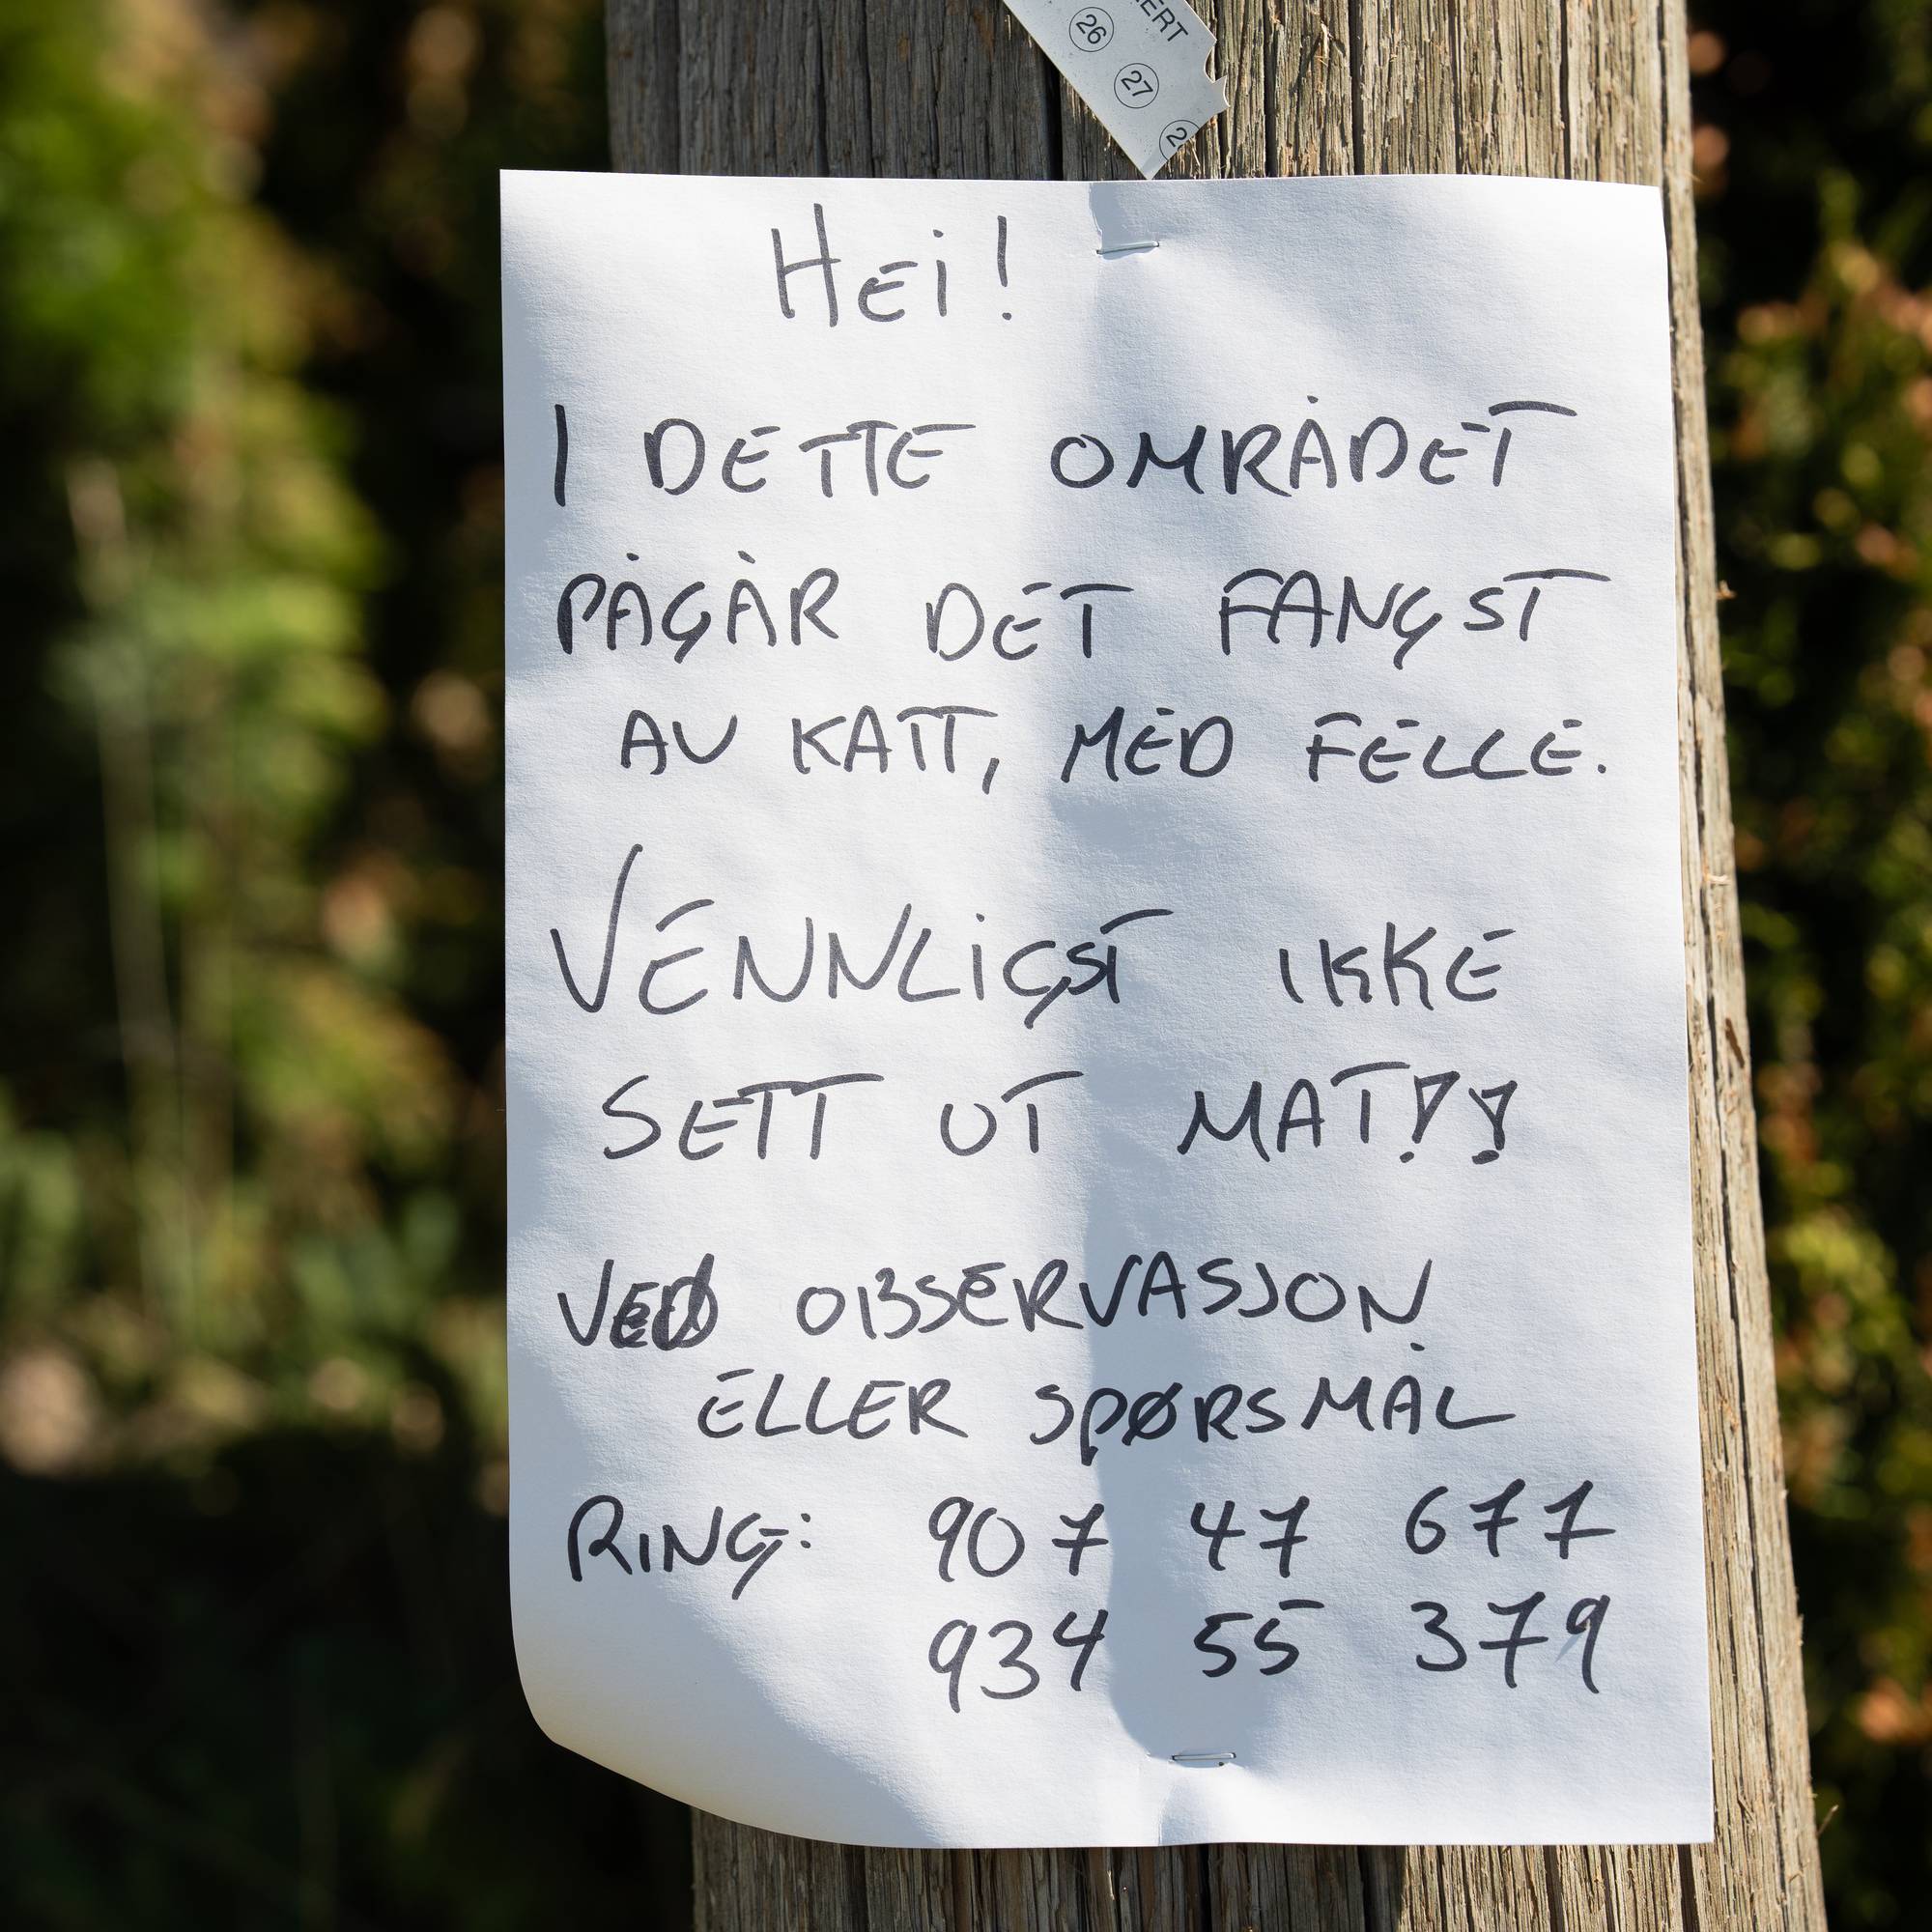 ERT
26
27
2
Hei!
I DETTE OMRÅDET
PÅGÅR DET FANGST
AV KATT, MED FELLE.
VENNLIGST IKKE
SETT UT MAT!!
VED OBSERVASJON
ELLER SPØRSMÅL
RING: 907 47 677
934 55 379